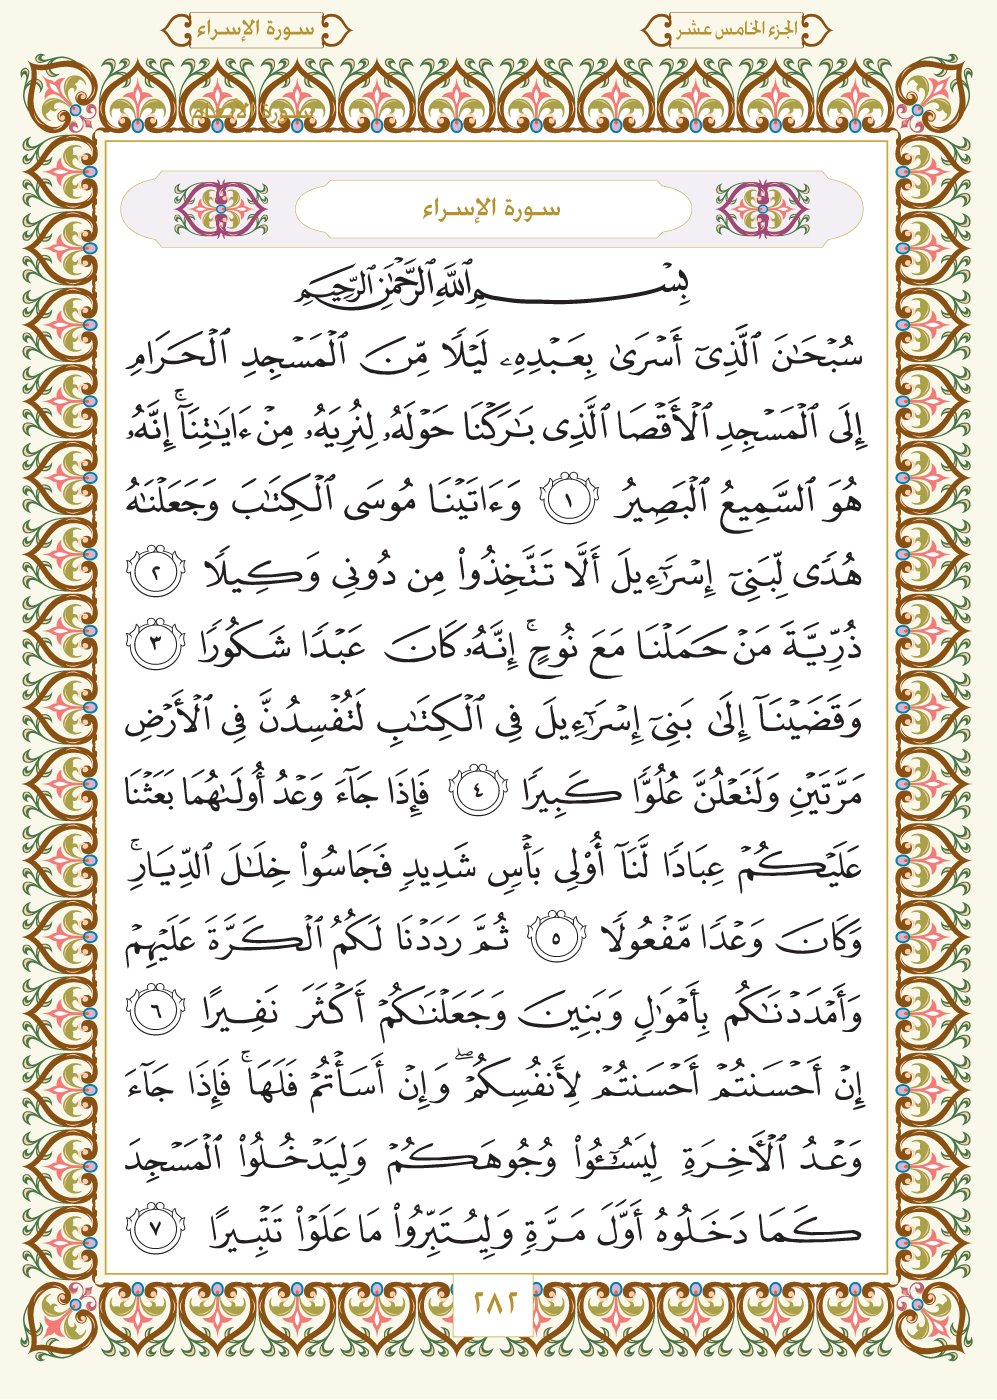 الجزء الخامس عشر
سورة الإسراء
سورة الإسراء
بِسْمِ ٱللَّهِ ٱلرَّحْمَٰنِ ٱلرَّحِيمِ
سُبْحَٰنَ ٱلَّذِىٓ أَسْرَىٰ بِعَبْدِهِۦ لَيْلًا مِّنَ ٱلْمَسْجِدِ ٱلْحَرَامِ
إِلَى ٱلْمَسْجِدِ ٱلْأَقْصَا ٱلَّذِى بَٰرَكْنَا حَوْلَهُۥ لِنُرِيَهُۥ مِنْ ءَايَٰتِنَآ ۚ إِنَّهُۥ
هُوَ ٱلسَّمِيعُ ٱلْبَصِيرُ ١ وَءَاتَيْنَا مُوسَى ٱلْكِتَٰبَ وَجَعَلْنَٰهُ
هُدًى لِّبَنِىٓ إِسْرَٰٓءِيلَ أَلَّا تَتَّخِذُوا۟ مِن دُونِى وَكِيلًا ٢
ذُرِّيَّةَ مَنْ حَمَلْنَا مَعَ نُوحٍ ۚ إِنَّهُۥ كَانَ عَبْدًا شَكُورًا ٣
وَقَضَيْنَآ إِلَىٰ بَنِىٓ إِسْرَٰٓءِيلَ فِى ٱلْكِتَٰبِ لَتُفْسِدُنَّ فِى ٱلْأَرْضِ
مَرَّتَيْنِ وَلَتَعْلُنَّ عُلُوًّا كَبِيرًا ٤ فَإِذَا جَآءَ وَعْدُ أُولَىٰهُمَا بَعَثْنَا
عَلَيْكُمْ عِبَادًا لَّنَآ أُو۟لِى بَأْسٍ شَدِيدٍ فَجَاسُوا۟ خِلَٰلَ ٱلدِّيَارِ ۚ
وَكَانَ وَعْدًا مَّفْعُولًا ٥ ثُمَّ رَدَدْنَا لَكُمُ ٱلْكَرَّةَ عَلَيْهِمْ
وَأَمْدَدْنَٰكُم بِأَمْوَٰلٍ وَبَنِينَ وَجَعَلْنَٰكُمْ أَكْثَرَ نَفِيرًا ٦
إِنْ أَحْسَنتُمْ أَحْسَنتُمْ لِأَنفُسِكُمْ ۖ وَإِنْ أَسَأْتُمْ فَلَهَا ۚ فَإِذَا جَآءَ
وَعْدُ ٱلْءَاخِرَةِ لِيَسُـۥٓـُٔوا۟ وُجُوهَكُمْ وَلِيَدْخُلُوا۟ ٱلْمَسْجِدَ
كَمَا دَخَلُوهُ أَوَّلَ مَرَّةٍ وَلِيُتَبِّرُوا۟ مَا عَلَوْا۟ تَتْبِيرًا ٧
٢٨٢